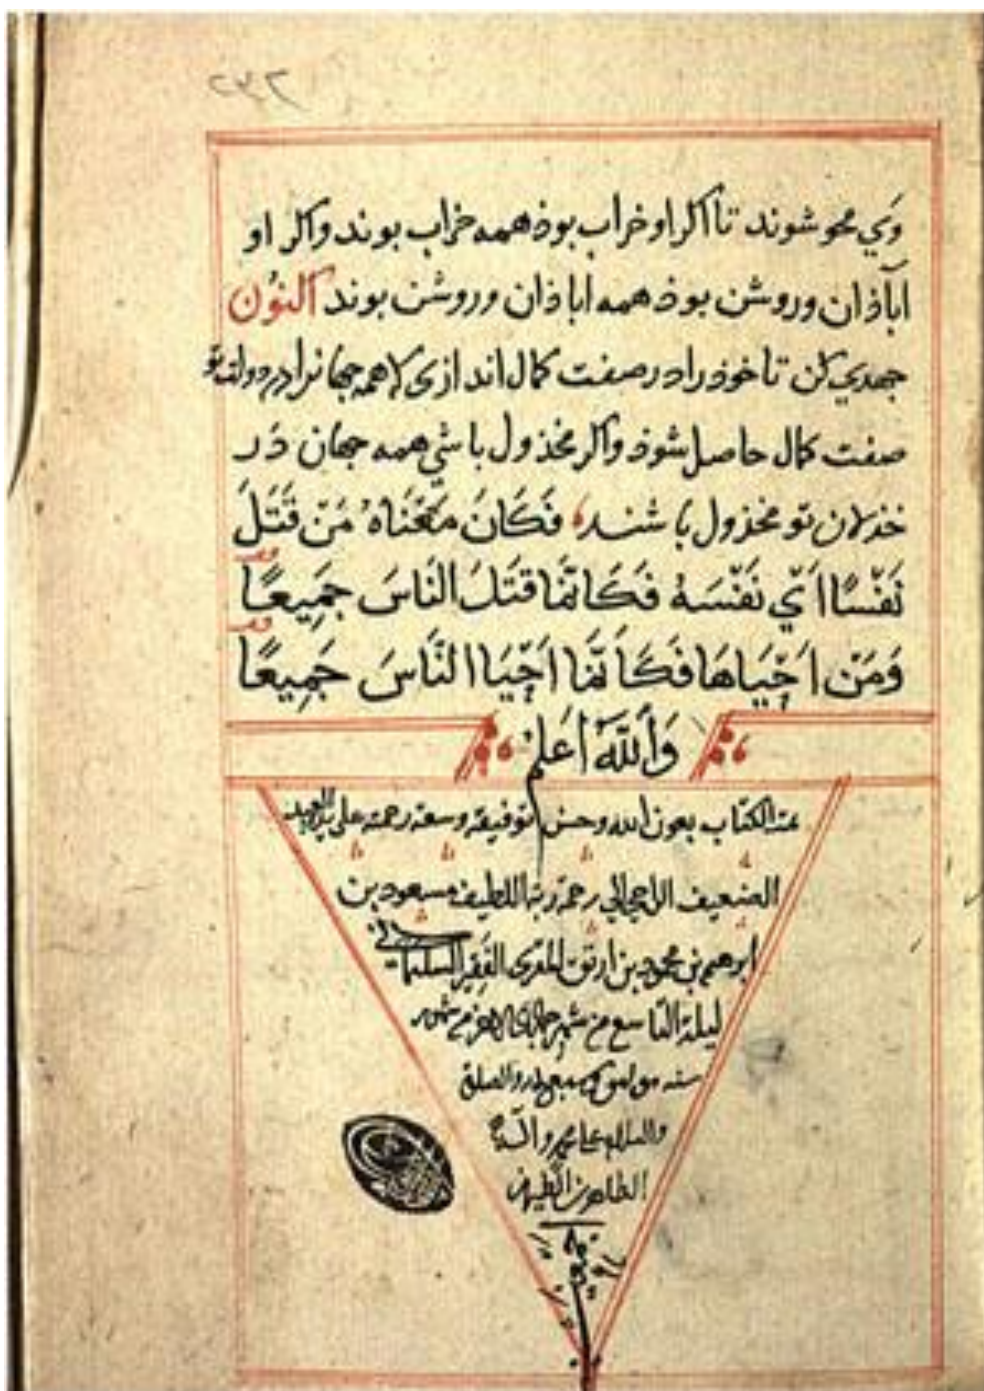 ۲۳۲
وَي محو شوند تا اكر او خراب بوذ همه خراب بوند واكر او
اباذان وروشن بوذ همه اباذان وروشن بوند اكنوُن
جهدي كن تا خوذ را در صفت كمال اندازى كه همه جهانرا در دولت تو
صفت كمال حاصل شوذ واكر مخذول باشي همه جهان دَر
خذلان تو مخذول باشند فَكَانَ مَعْنَاهُ مَنْ قَتَلَ
نَفْسًا اَيْ نَفْسَهُ فَكَاَنَّمَا قَتَلَ النَاسَ جَمِيعًا
وَمَنْ اَحْيَاهَا فَكَاَنَّمَا اَحْيَا النَّاسَ جَمِيعًا
وَاَللّٰهُ اَعلمُ
تمت الكتاب بعون الله وحسن توفيقه وسعة رحمته على يد العبد
الضعيف الراجي الى رحمة ربه اللطيف مسعود بن
ابرهيم بن محمود بن ارتق المقرى الفقير السليماني
ليلة التاسع من شهر جمادى من شهور
سنه والصلوة
والسلام على محمد واله
الطاهرين